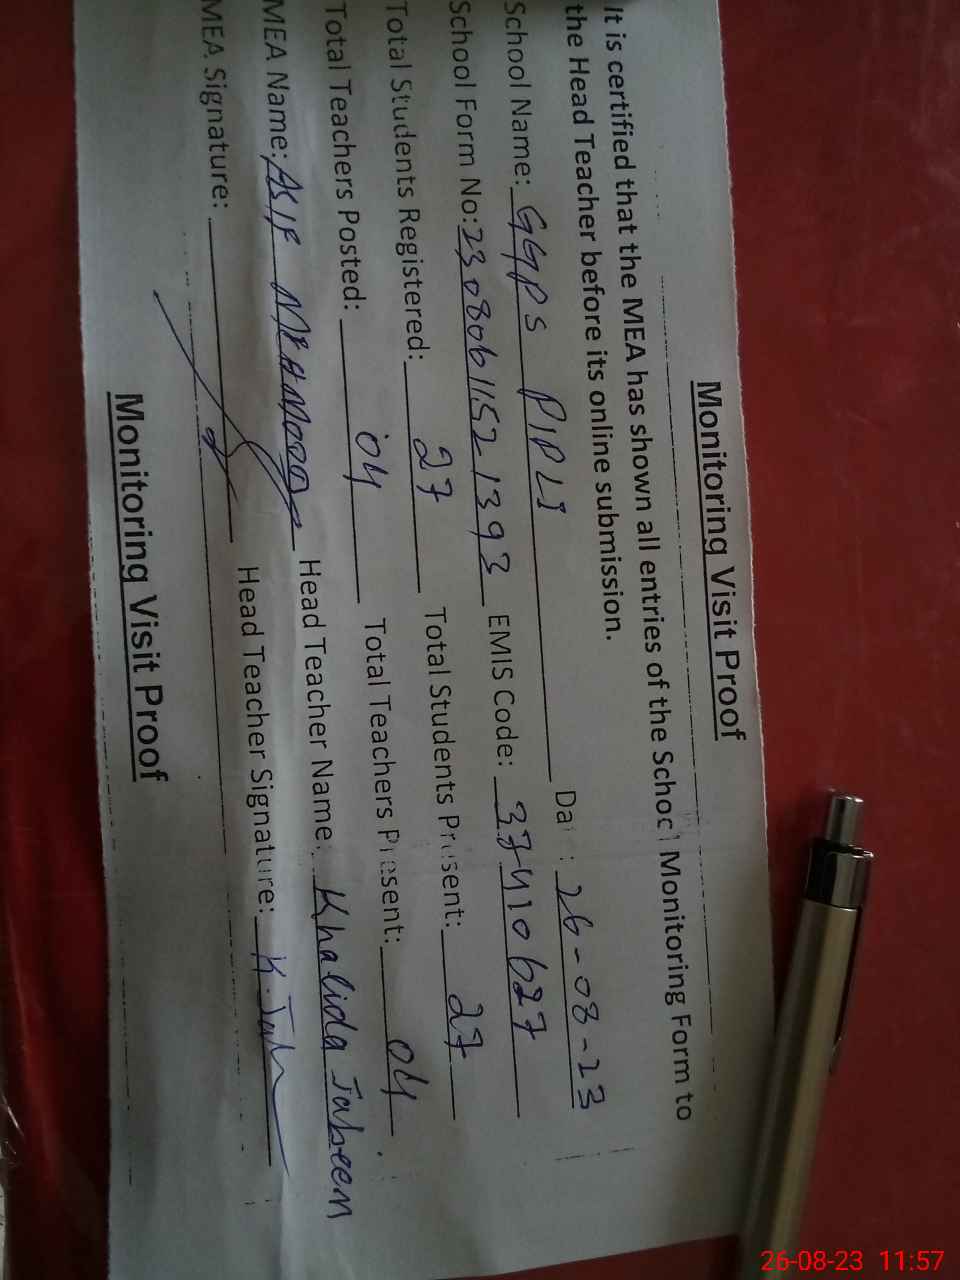 Monitoring Visit Proof
It is certified that the MEA has shown all entries of the School Monitoring Form to
the Head Teacher before its online submission.
School Name: GGPS PIPLI Da : 26-08-23
School Form No: 2308061152 1393 EMIS Code: 37410627
Total Students Registered: 27 Total Students Present: 27
Total Teachers Posted: 04 Total Teachers Present: 04
MEA Name: ASIF MEHMOOD Head Teacher Name: Khalida Jabeen
MEA Signature: Head Teacher Signature: K.
Monitoring Visit Proof
26-08-23 11:57